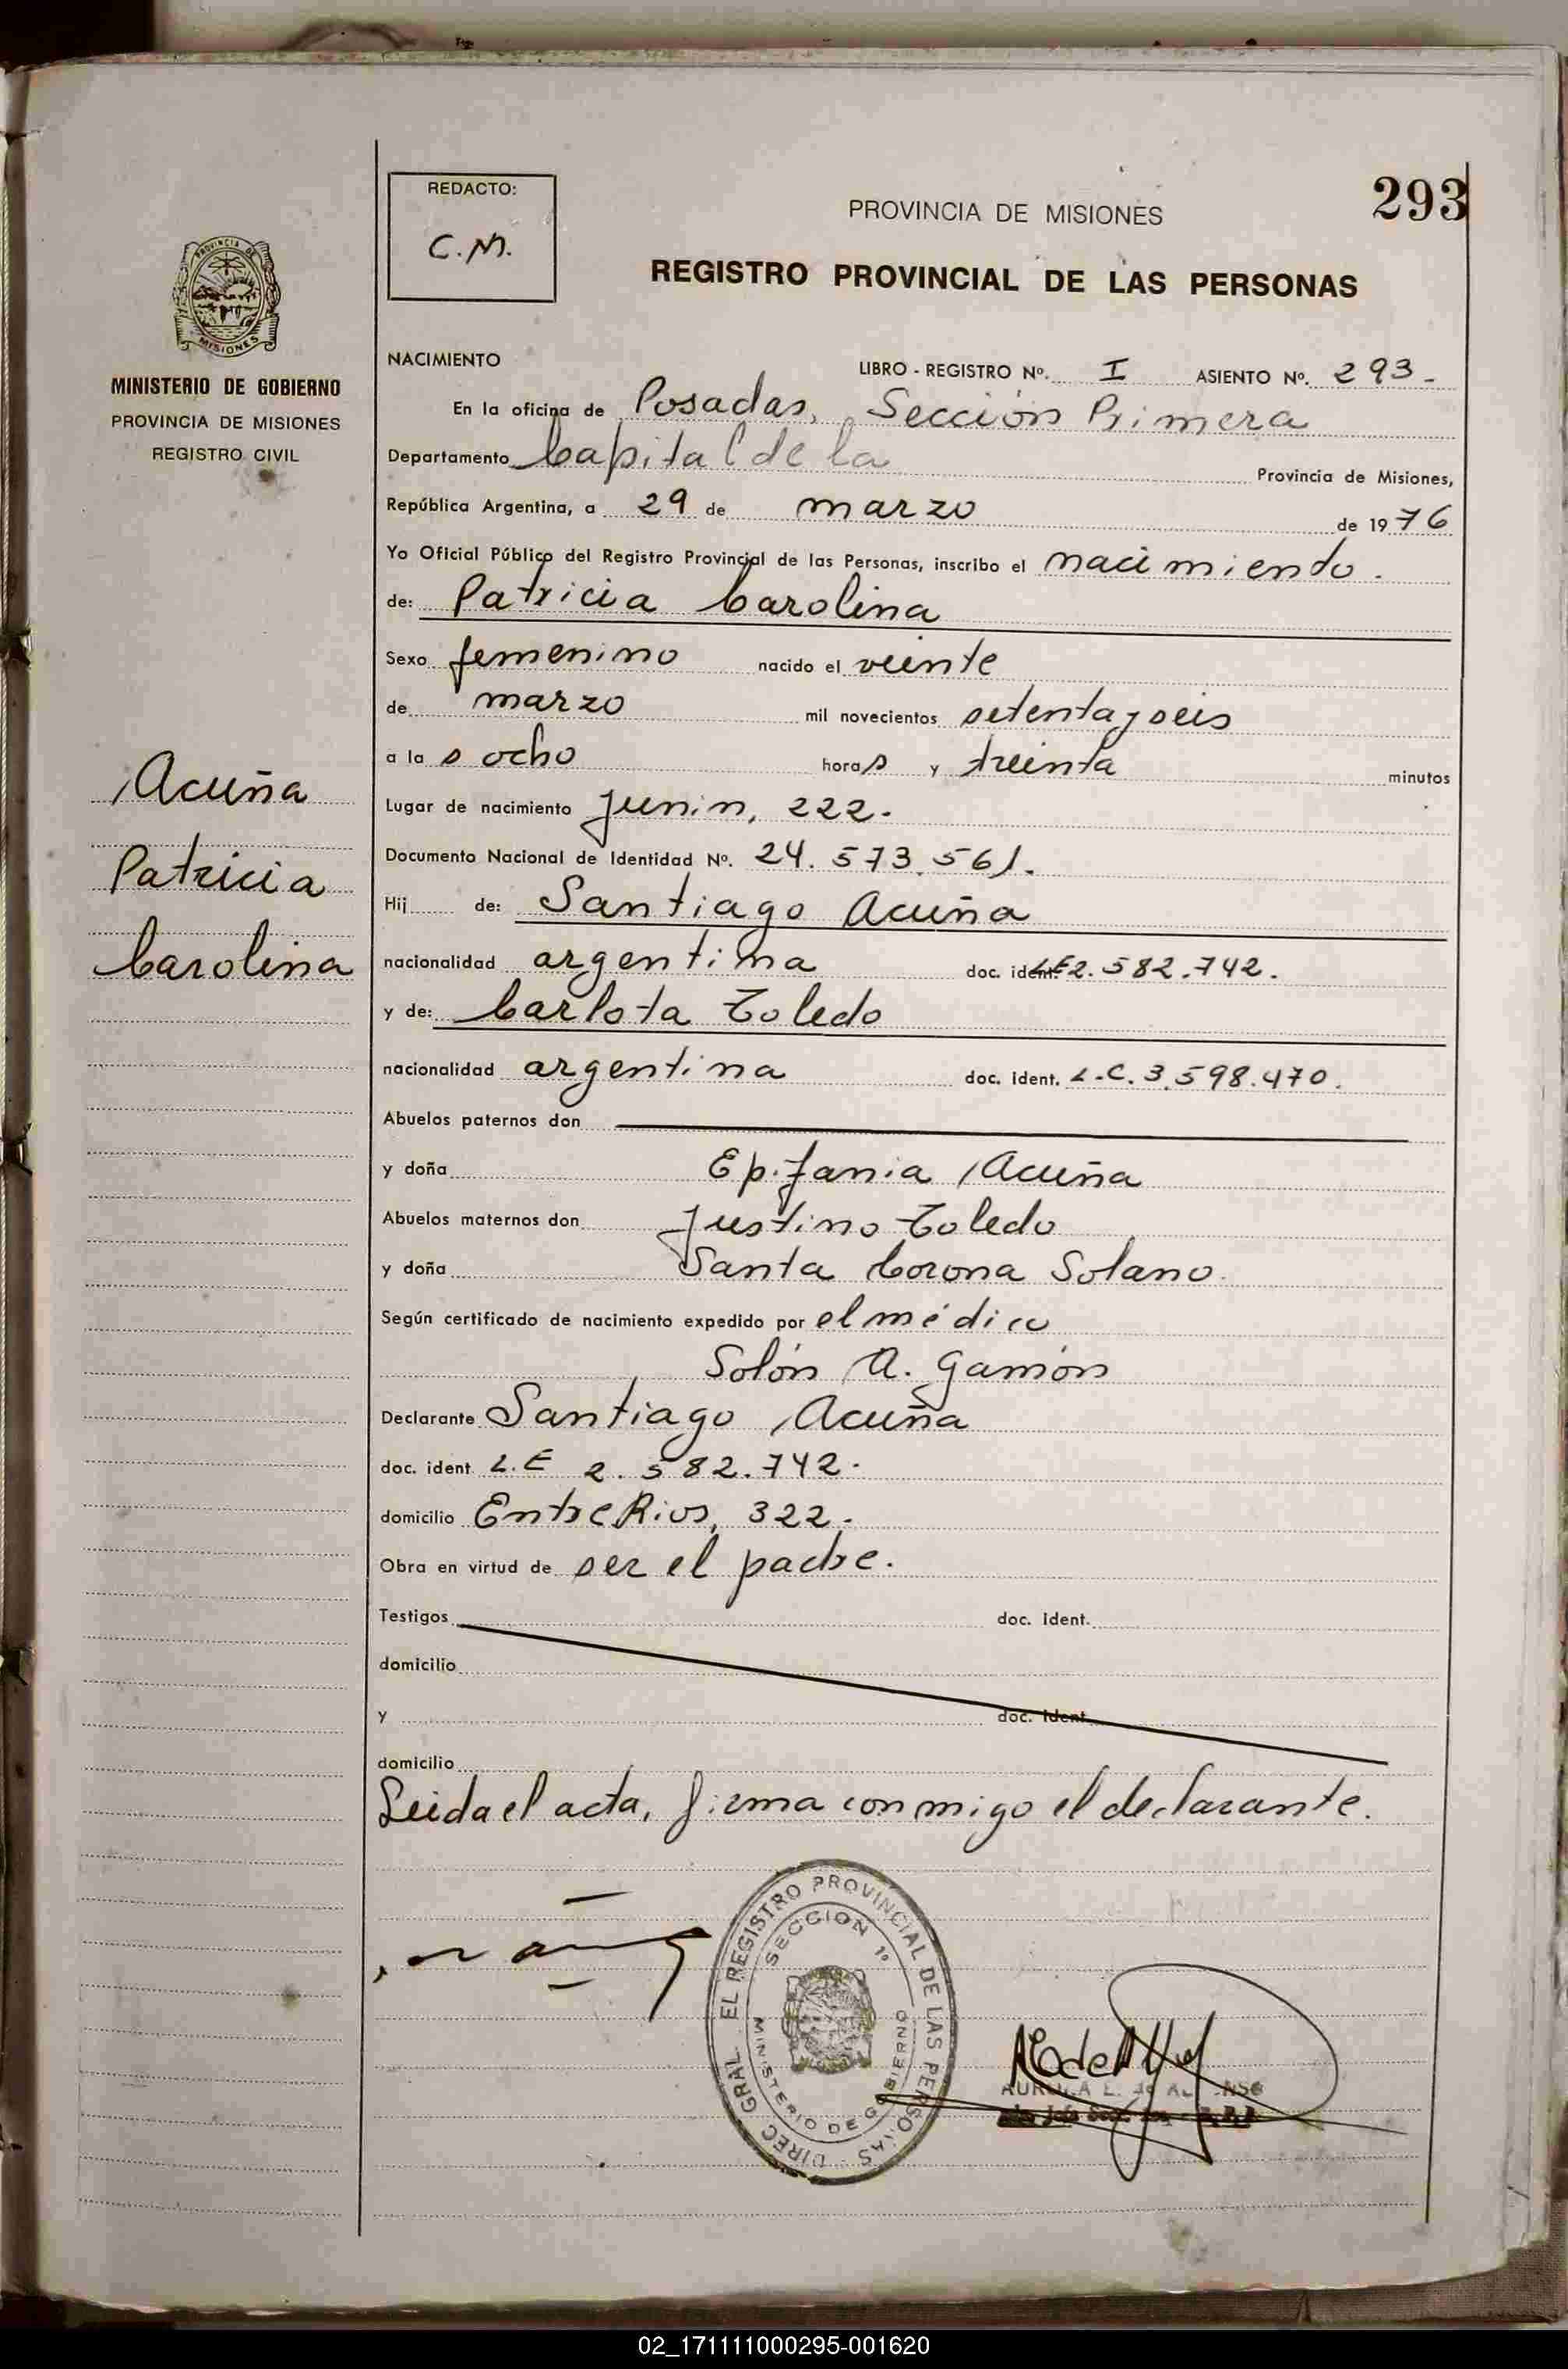 293
REDACTO:
C.M.
PROVINCIA DE MISIONES
REGISTRO PROVINCIAL DE LAS PERSONAS
PROVINCIA DE
MISIONES
MINISTERIO DE GOBIERNO
PROVINCIA DE MISIONES
REGISTRO CIVIL
Acuña
Patricia
Carolina
NACIMIENTO LIBRO - REGISTRO Nº. I ASIENTO Nº. 293-
En la oficina de Posadas, Sección Primera
Departamento Capital de la Provincia de Misiones,
República Argentina, a 29 de marzo de 1976
Yo Oficial Público del Registro Provincial de las Personas, inscribo el nacimiento.
de: Patricia Carolina
Sexo femenino nacido el veinte
de marzo mil novecientos setenta y seis
a la s ocho horas y treinta minutos
Lugar de nacimiento Junin, 222.
Documento Nacional de Identidad Nº. 24.573.561.
Hij de: Santiago Acuña
nacionalidad argentina doc. ident. LE 2.582.742.
y de: Carlota Toledo
nacionalidad argentina doc. ident. L.C. 3.598.470.
Abuelos paternos don
y doña Epifania Acuña
Abuelos maternos don Justino Toledo
y doña Santa Corona Solano.
Según certificado de nacimiento expedido por el médico
Solón A. Gamón
Declarante Santiago Acuña
doc. ident L.E 2.582.742.
domicilio Entre Rios, 322.
Obra en virtud de ser el padre.
Testigos doc. ident.
domicilio
y doc. ident.
domicilio
Leida el acta, firma conmigo el declarante.
DIREC GRAL. EL REGISTRO PROVINCIAL DE LAS PERSONAS
SECCION 1º
MINISTERIO DE GOBIERNO
02_171111000295-001620